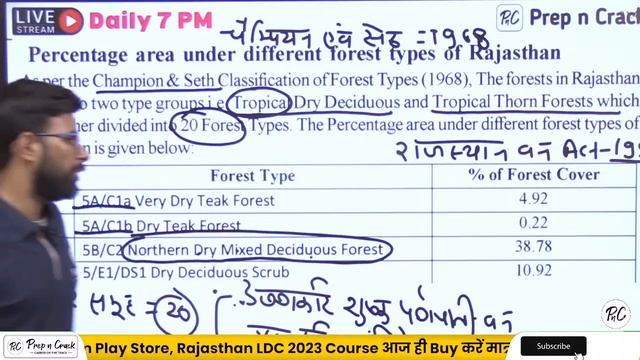 LIVE STREAM Daily 7 PM
PnC Prep n Crack
चैम्पियन एवं सेठ = 1968
Percentage area under different forest types of Rajasthan
As per the Champion & Seth Classification of Forest Types (1968), The forests in Rajasthan
two type groups i.e Tropical Dry Deciduous and Tropical Thorn Forests which
into 20 Forest Types. The Percentage area under different forest types of
is given below:
राजस्थान वन Act-19
Forest Type % of Forest Cover
5A/C1a Very Dry Teak Forest 4.92
5A/C1b Dry Teak Forest 0.22
5B/C2 Northern Dry Mixed Deciduous Forest 38.78
5/E1/DS1 Dry Deciduous Scrub 10.92
= 20 शुष्क
PnC
PnC Prep n Crack
CAREER ON THE TRACK
n Play Store, Rajasthan LDC 2023 Course आज ही Buy करें मात्र
Subscribe